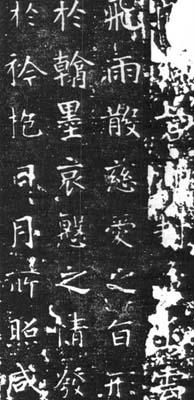 雲
飛雨散慈愛之旨形
於翰墨哀慜之情發
於衿抱日月所照咸